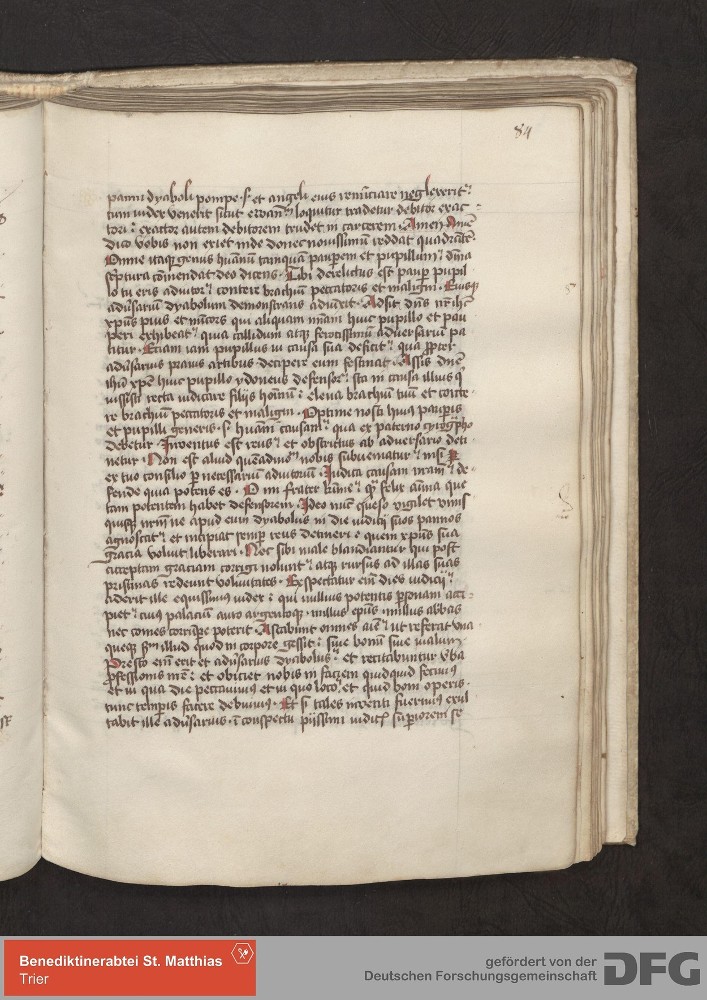 84
panni dyaboli pompe · s· et angeli eius renūciare neglexerit
cum iudex venerit sicut loquitur tradetur debitor exac
tori exactor autem debitorem trudet in carcerem · Amen Amē
dico vobis non exiet inde donec novissimū reddat quadrātē
Omne itaq genus hūanū tamquā pauꝑem et pupillum dīna
scriptura cōmendat deo dicens · Tibi derelictus est pauꝑ pupil
lo tu eris adiutor contere brachiū peccatoris et maligni · Eiusq
adusariū dyabolum demonstrans adiuxit · Adsit dn̄s nr̄ ihū
xp̄us pius et qui aliquam mīam huic pupillo et pau
peri exhibeat quia callidum atq ferocissimū adversariū pa
titur · Etiam iam pupillus in causa sua deficit quā ꝓpter
adūsarius pravis artibus decipere eum festinat · Assis dn̄e
ihū xp̄e huic pupillo ydoneus defensor sta in causa illius q
iussisti recta iudicare filijs hoīnū eleva brachiū tuū et conte
re brachiū peccatoris et maligni · Optime nosti huius pauꝑis
et pupilli generis · s· hūani causam qua ex paterno
debetur · Inventus est reus et obstrictus ab adversario deti
netur · Non est aliud nobis subveniatur nisi
ex tuo consilio ꝑ necessariū adiutoriū · Iudica causam nr̄am de
fende quia potens es · O mi frater kr̄me felix aīma que
tam potentem habet defensorem · Ideo nūc queso vigilet unus
quisq nr̄m ne apud eum dyabolus in die iudicij suos pannos
agnoscat et incipiat semꝑ reus detineri e quem xp̄us sua
gracia voluit liberari · Nec sibi male blandiantur qui post
acceptam graciam corrigi nolunt atq rursus ad illas suas
pristinas redeunt voluntates · Expectatur eīm dies iudicij
aderit ille equissimus iudex qui nullius potentis ꝑsonam acci
piet cuius palacium auro argentoque nullus ep̄us nullus abbas
nec comes corrūpe poterit · Astabunt omnes aīe ut referat vna
queq sm̄ illud quod in corpore gessit sive bonū sive malum
Presto eīm erit et adūsarius dyabolus et recitabuntur v̄ba
ꝓfessionis nr̄e et obiciet nobis in faciem quidquid fecimus
et in qua die peccavimus et in quo loco et quid boni operis
tunc tempis facere debuimus · Et si tales inventi fuerimus exul
tabit ille adūsarius ī conspectu pijssimi iudicis supiorem se
Benediktinerabtei St. Matthias
Trier
gefördert von der
Deutschen Forschungsgemeinschaft
DFG